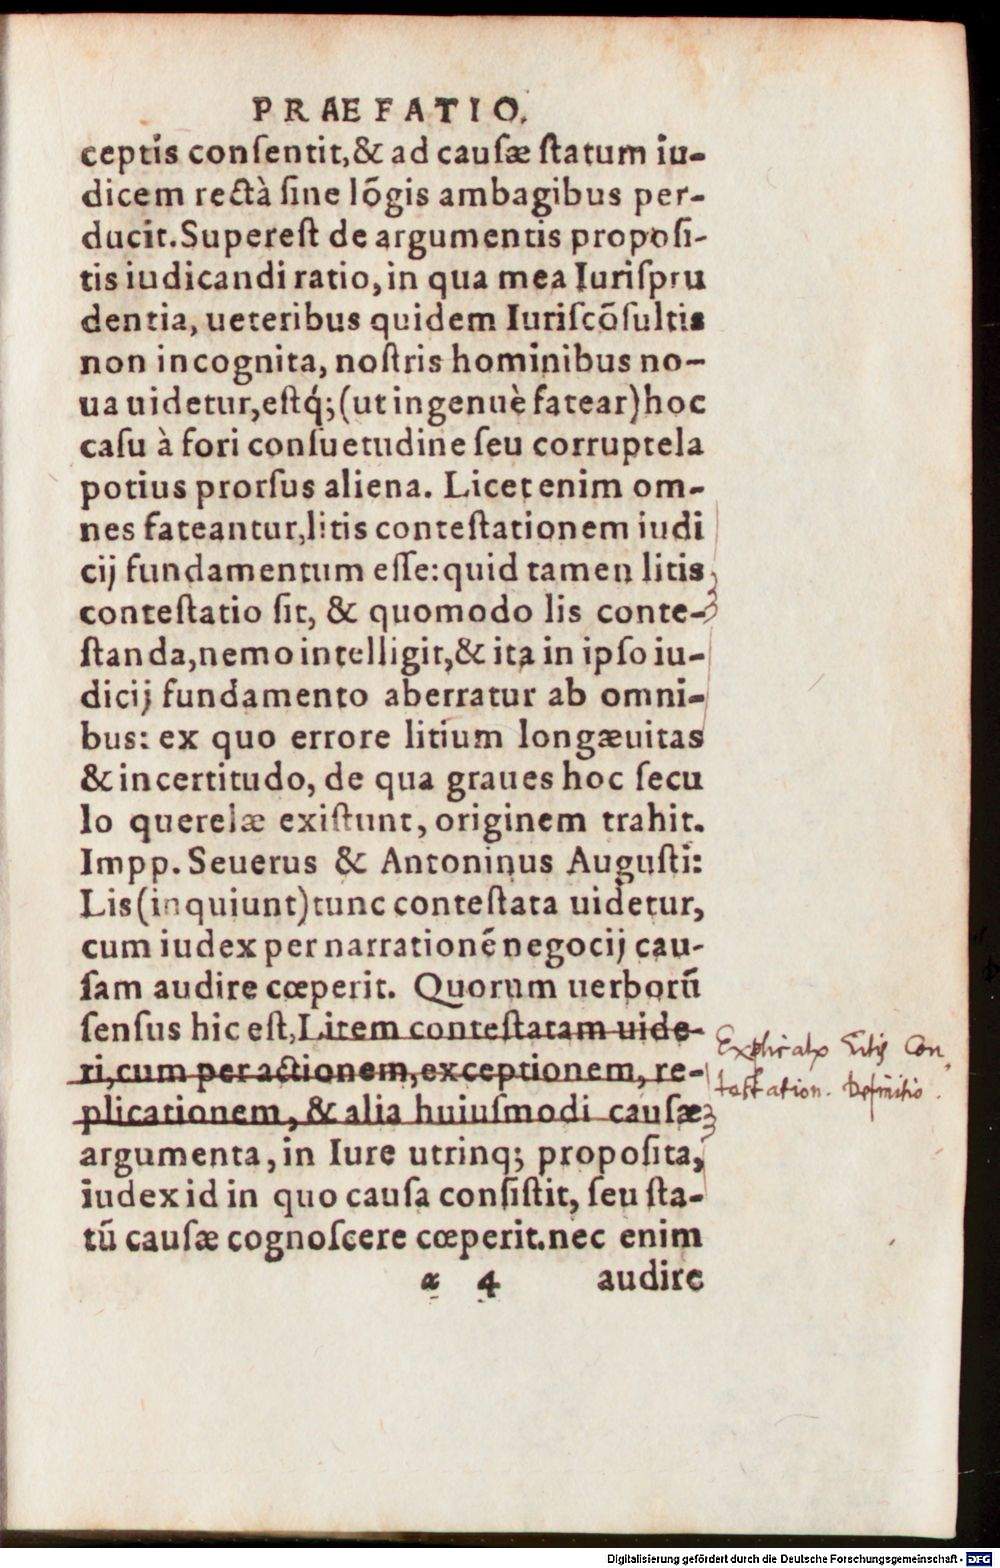 PRAEFATIO.
ceptis conſentit,& ad cauſæ ſtatum iu-
dicem rectà ſine lõgis ambagibus per-
ducit.Supereſt de argumentis propoſi-
tis iudicandi ratio,in qua mea Iuriſpru
dentia, ueteribus quidem Iuriſcõſultis
non incognita, noſtris hominibus no-
ua uidetur,eſtq́;(ut ingenuè fatear)hoc
caſu à fori conſuetudine ſeu corruptela
potius prorſus aliena. Licet enim om-
nes fateantur,litis conteſtationem iudi
cij fundamentum eſſe:quid tamen litis
conteſtatio ſit, & quomodo lis conte-
ſtanda,nemo intelligit,& ita in ipſo iu-
dicij fundamento aberratur ab omni-
bus: ex quo errore litium longæuitas
& incertitudo, de qua graues hoc ſecu
lo querelæ exiſtunt, originem trahit.
Impp. Seuerus & Antoninus Auguſti:
Lis(inquiunt)tunc conteſtata uidetur,
cum iudex per narrationẽ negocij cau-
ſam audire cœperit. Quorum uerborũ
ſenſus hic eſt,Litem conteſtatam uide-
ri,cum per actionem,exceptionem, re-
plicationem, & alia huiuſmodi cauſæ
argumenta, in Iure utrinq; propoſita,
iudex id in quo cauſa conſiſtit, ſeu ſta-
tũ cauſæ cognoſcere cœperit.nec enim
α 4 audire
Litis Con
testation. Definitio.
Digitalisierung gefördert durch die Deutsche Forschungsgemeinschaft - DFG